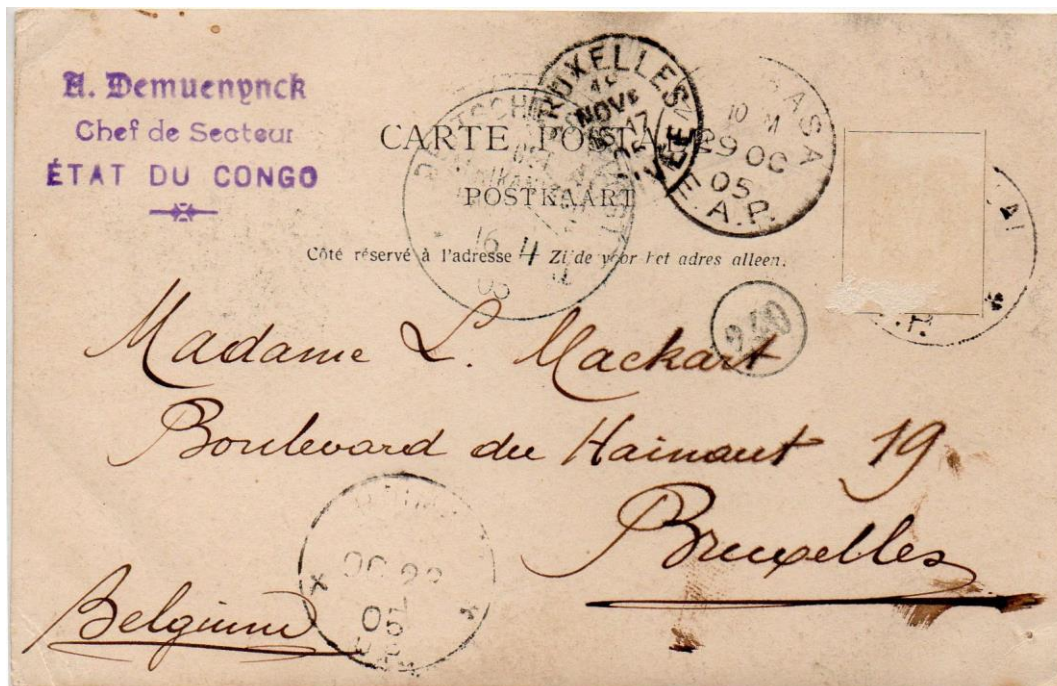 A. Demuenynck
Chef de Secteur
ÉTAT DU CONGO
CARTE POSTALE
POSTKAART
Côté réservé à l'adresse Zijde voor het adres alleen.
BRUXELLES
NOV
17
10 M
29 OC
05
E.A.P.
16
4
Madame L. Mackart
Boulevard du Hainaut 19
Bruxelles
Belgium
OC 22
05